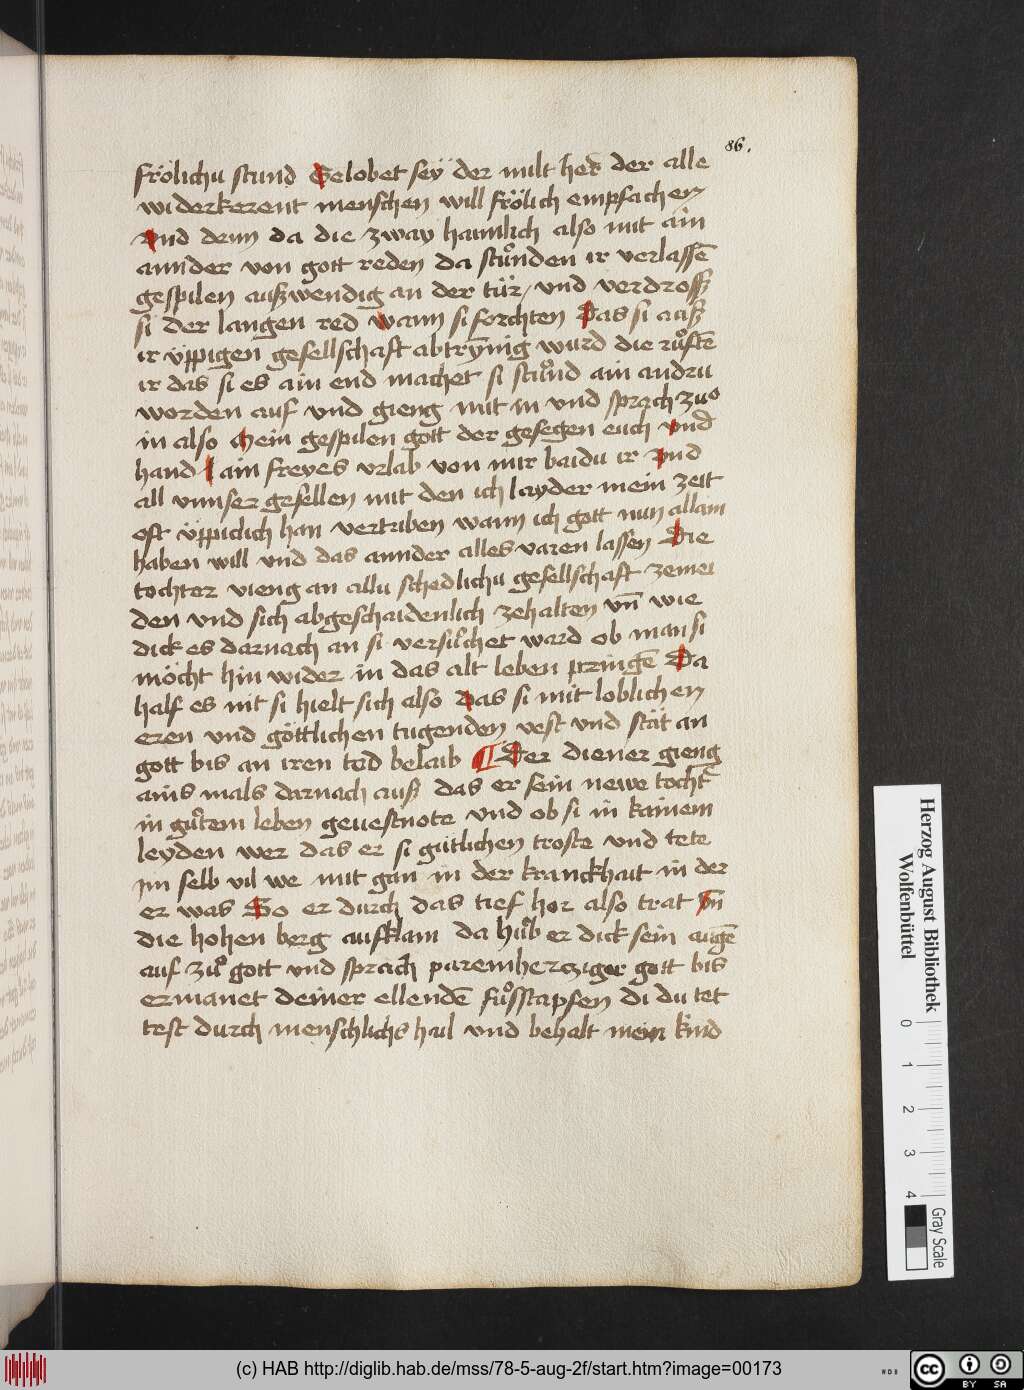 86.
frölichu stund Gelobet seÿ der milt her der alle
widerkerent menschen will frölich empfachen
Vnd denn da die zway haimlich also mit ain
annder von gott reden da stůnden ir verlassē
gespilen außwendig an der tür / vnd verdroß
si der langen red wann si forchten Das si auß
ir üppigen gesellschaft abtrÿnig wurd die růftē
ir das si es ain end machet si stůnd ain andru
worden auf vnd gieng mit in vnd sprach zuo
in also Mein gespilen gott der gesegen euch vnd
hand ain freyes vrlab von mir baidu ir vnd
all vnnser gesellen mit den ich layder mein zeit
oft üppiclich han vertriben wann ich gott nun allain
haben will vnd das annder alles varen lassen Die
tochter vieng an allu schedlichu gesellschaft zemei
den vnd sich abgeschaidenlich zehalten vn̄ wie
dick es darnach an si versůchet ward ob man si
möcht hin wider in das alt leben pringē Da
half es nit si hielt sich also Das si mit loblichen
eren vnd göttlichen tugenden vest vnd stät an
gott bis an iren tod belaib ¶ Der diener gieng
ains mals darnach auß das er sein newe tocht̄
in gůtem leben gevestnote vnd ob si in kainem
leyden wer das er si gütlichen troste vnd tete
im selb vil we mit gan in der kranckhait in der
er was So er durch das tief hor also trat vn̄
die hohen berg aufklam da hůb er dick sein augē
auf zů gott vnd sprach paremhercziger gott bis
ermanet deiner ellendē fůsstapfen di du tet
test durch menschlichs hail vnd behalt mein kind
Herzog August Bibliothek
Wolfenbüttel
0 1 2 3 4
Gray Scale
(c) HAB http://diglib.hab.de/mss/78-5-aug-2f/start.htm?image=00173
WDB
cc BY SA